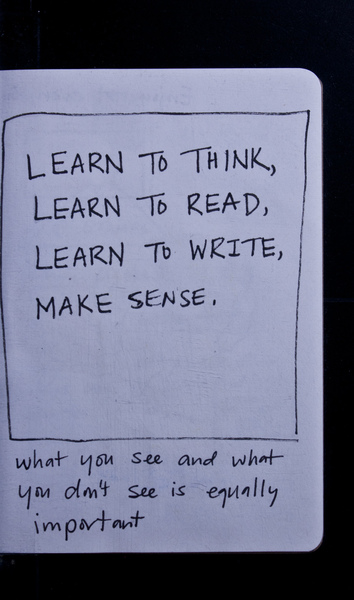 LEARN TO THINK,
LEARN TO READ,
LEARN TO WRITE,
MAKE SENSE.
what you see and what
you don't see is equally
important